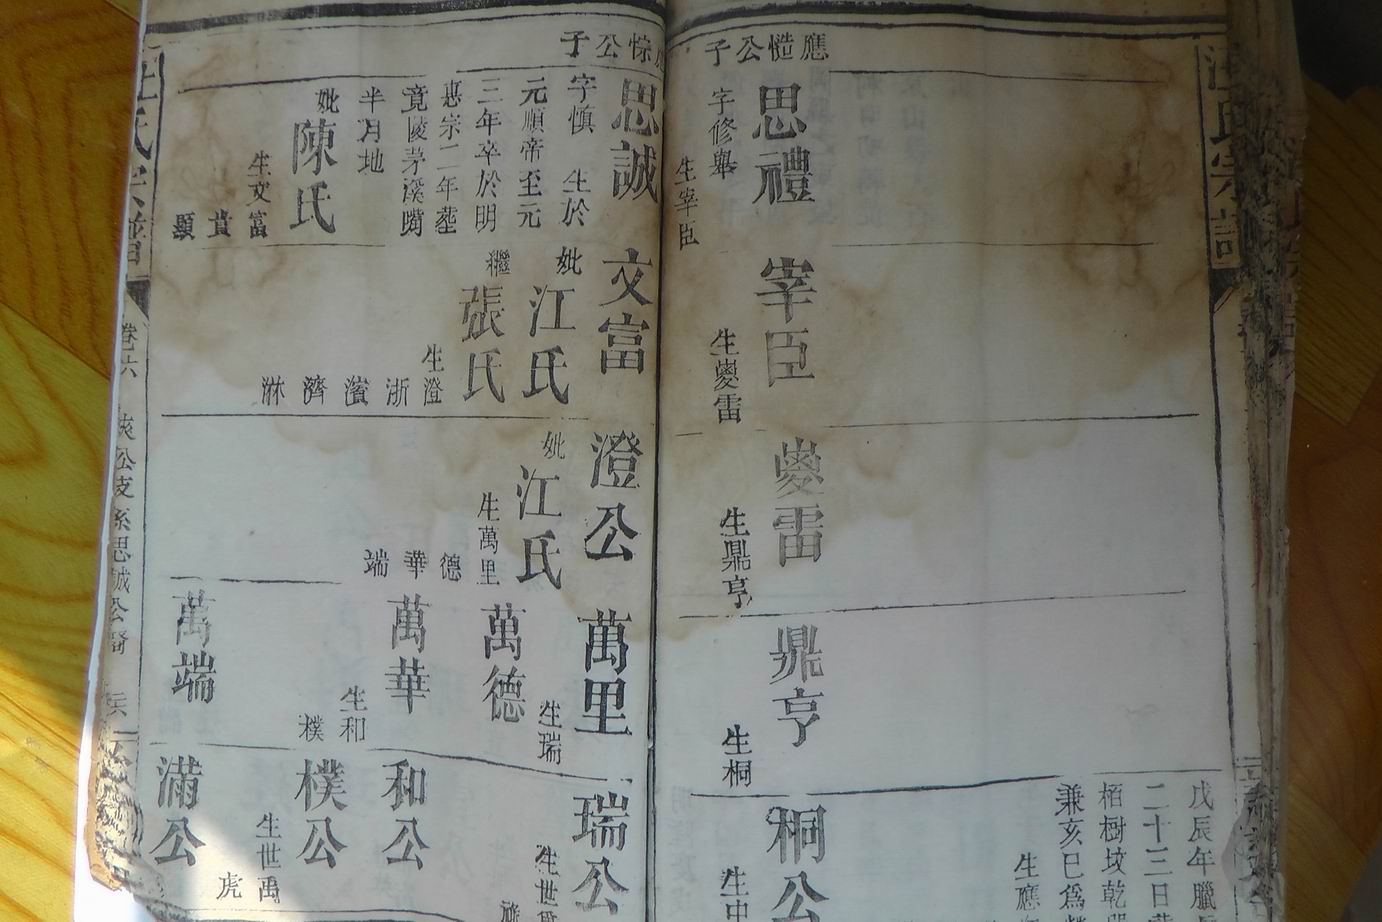 應慥公子
思禮
字修舉
生宰臣
宰臣
生夔雷
夔雷
生鼎亨
鼎亨
生桐
戊辰年臘
二十三日
栢樹坟乾
兼亥巳為
生應
桐公
生中
惊公子
思誠
字慎 生於
元順帝至元
三年卒於明
惠宗二年塟
竟陵茅溪嘴
半月地
妣
陳氏
生文富
貴
顯
文富
妣
江氏
繼
張氏
生澄
浙
濱
濟
淋
澄公
妣
江氏
生萬里
德
華
端
萬里
生瑞
萬德
萬華
生和
樸
萬端
瑞公
生世
和公
樸公
生世禹
虎
滿公
汪氏宗譜
卷六
公支系思誠公裔